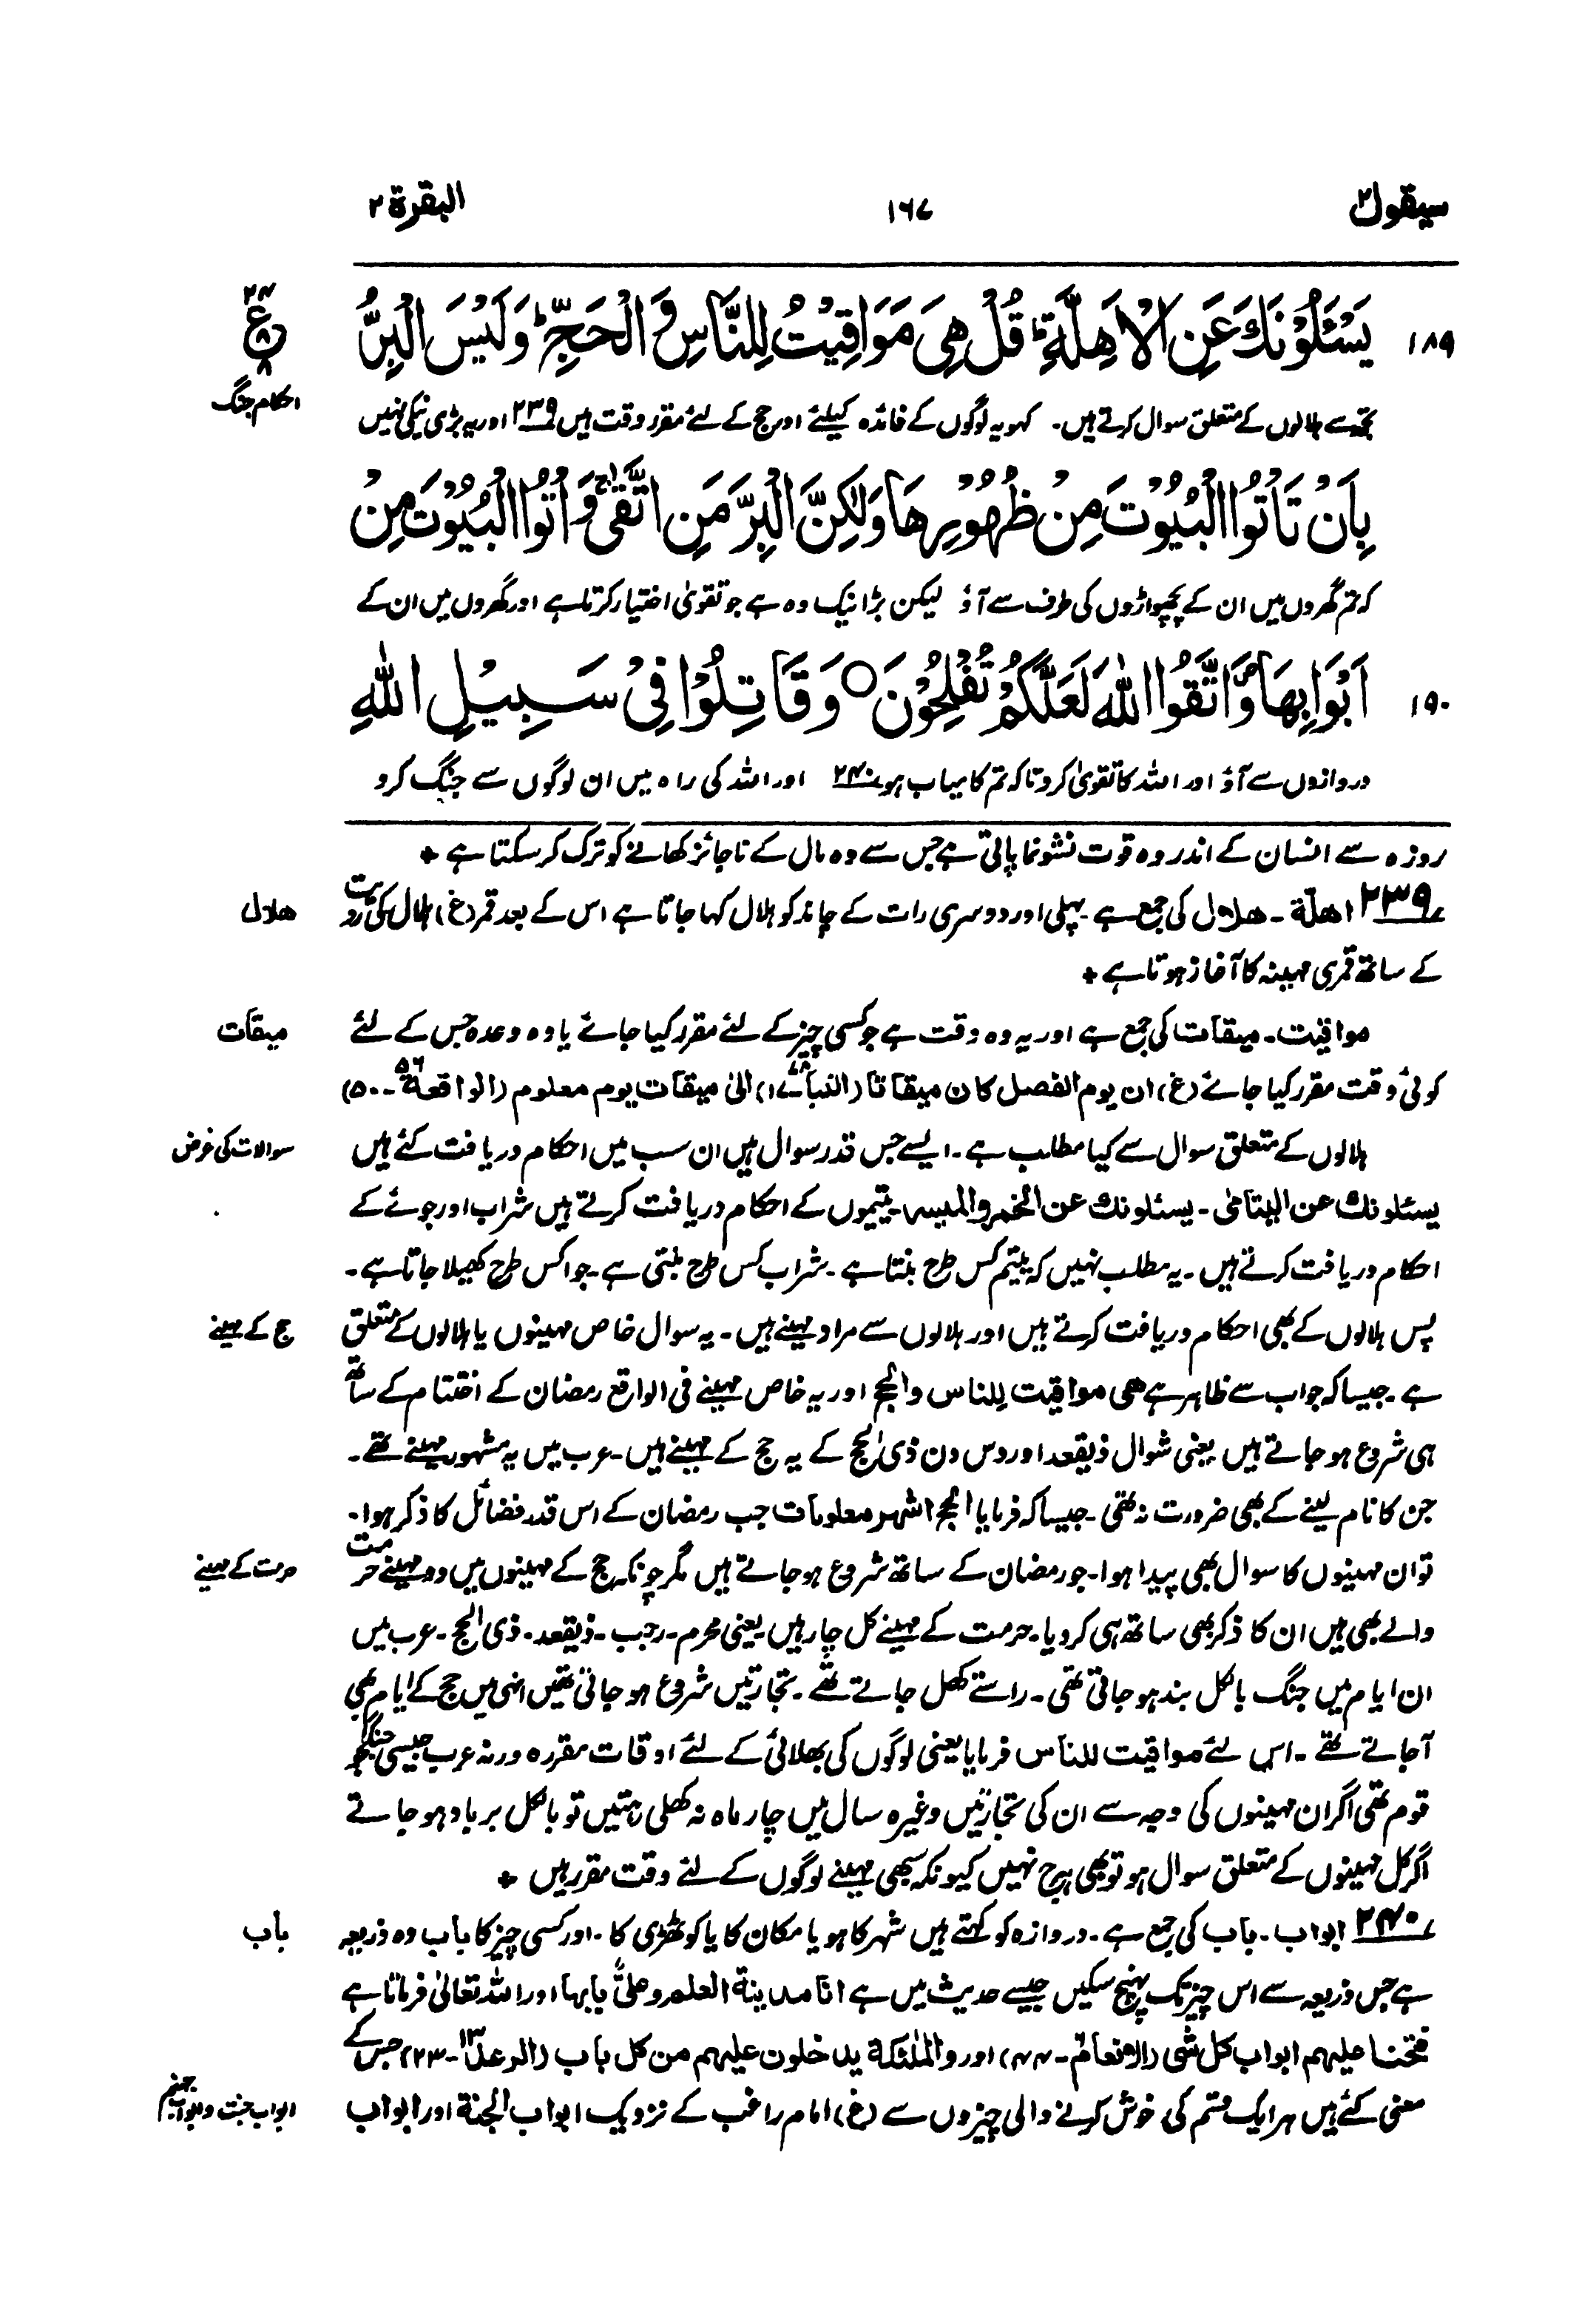 سیقول ۲
۱۶۷
البقرة ۲
۱۸۹
یَسْـَٔلُوْنَكَ عَنِ الْاَهِلَّةِ ؕ قُلْ هِیَ مَوَاقِیْتُ لِلنَّاسِ وَ الْحَجِّ ؕ وَلَیْسَ الْبِرُّ
۲۴
ع
۸
۸
احکام جنگ
تجھ سے ہلالوں کے متعلق سوال کرتے ہیں۔ کہو یہ لوگوں کے فائدہ کیلئے اور حج کے لئے مقرر وقت ہیں ۲۳۹ اور یہ بڑی نیکی نہیں
بِاَنْ تَاْتُوا الْبُیُوْتَ مِنْ ظُهُوْرِهَا وَلٰكِنَّ الْبِرَّ مَنِ اتَّقٰى ۚ وَ اْتُوا الْبُیُوْتَ مِنْ
کہ تم گھروں میں ان کے پچھواڑوں کی طرف سے آؤ لیکن بڑا نیک وہ ہے جو تقویٰ اختیار کرتا ہے اور گھروں میں ان کے
اَبْوَابِهَا ۪ وَ اتَّقُوا اللّٰهَ لَعَلَّكُمْ تُفْلِحُوْنَ ○ وَ قَاتِلُوْا فِیْ سَبِیْلِ اللّٰهِ
۱۹۰
دروازوں سے آؤ اور اللہ کا تقویٰ کرو تاکہ تم کامیاب ہو ۲۴۰ اور اللہ کی راہ میں ان لوگوں سے جنگ کرو
روزہ سے انسان کے اندر وہ قوت نشوونما پاتی ہے جس سے وہ مال کے ناجائز کھانے کو ترک کر سکتا ہے +
۲۳۹ اهلّة ۔ هلال کی جمع ہے ۔ پہلی اور دوسری رات کے چاند کو ہلال کہا جاتا ہے اس کے بعد قمر (غ) ہلال کی رویت
هلال
کے ساتھ قمری مہینہ کا آغاز ہوتا ہے +
مواقیت ۔ میقات کی جمع ہے اور یہ وہ وقت ہے جو کسی چیز کے لئے مقرر کیا جائے یا وہ وعدہ جس کے لئے
میقات
کوئی وقت مقرر کیا جائے (غ) ان یوم الفصل کان میقاتا (النبا ۷۸ ۔ ۱۷) الیٰ میقات یوم معلوم (الواقعة ۵۶ ۔ ۵۰)
ہلالوں کے متعلق سوال سے کیا مطلب ہے ۔ ایسے جس قدر سوال ہیں ان سب میں احکام دریافت کئے ہیں
سوالات کی غرض
یسئلونك عن الیتامیٰ ۔ یسئلونك عن الخمر والمیسر ۔ یتیموں کے احکام دریافت کرتے ہیں شراب اور جوئے کے
احکام دریافت کرتے ہیں ۔ یہ مطلب نہیں کہ یتیم کس طرح بنتا ہے ۔ شراب کس طرح بنتی ہے ۔ جوا کس طرح کھیلا جاتا ہے ۔
پس ہلالوں کے بھی احکام دریافت کرتے ہیں اور ہلالوں سے مراد مہینے ہیں ۔ یہ سوال خاص مہینوں یا ہلالوں کے متعلق
حج کے مہینے
ہے ۔ جیسا کہ جواب سے ظاہر ہے هی مواقیت للناس والحج اور یہ خاص مہینے فی الواقع رمضان کے اختتام کے ساتھ
ہی شروع ہو جاتے ہیں یعنی شوال ذیقعد اور دس دن ذی الحج کے یہ حج کے مہینے ہیں ۔ عرب میں یہ مشہور مہینے تھے ۔
جن کا نام لینے کے بھی ضرورت نہ تھی ۔ جیسا کہ فرمایا الحج اشهر معلومات جب رمضان کے اس قدر فضائل کا ذکر ہوا ۔
تو ان مہینوں کا سوال بھی پیدا ہوا ۔ جو رمضان کے ساتھ شروع ہو جاتے ہیں مگر چونکہ حج کے مہینوں میں دو مہینے حرمت
حرمت کے مہینے
والے بھی ہیں ان کا ذکر بھی ساتھ ہی کر دیا ۔ حرمت کے مہینے کل چار ہیں ۔ یعنی محرم ۔ رجب ۔ ذیقعد ۔ ذی الحج ۔ عرب میں
ان ایام میں جنگ بالکل بند ہو جاتی تھی ۔ راستے کھل جاتے تھے ۔ تجارتیں شروع ہو جاتی تھیں انہی میں حج کے ایام بھی
آجاتے تھے ۔ اس لئے مواقیت للناس فرمایا یعنی لوگوں کی بھلائی کے لئے اوقات مقررہ ورنہ عرب جیسی جنگجو
قوم تھی اگر ان مہینوں کی وجہ سے ان کی تجارتیں وغیرہ سال میں چار ماہ نہ کھلی رہتیں تو بالکل برباد ہو جاتے
اگر کل مہینوں کے متعلق سوال ہو تو بھی ہرج نہیں کیونکہ سبھی مہینے لوگوں کے لئے وقت مقرر ہیں +
۲۴۰ ابواب ۔ باب کی جمع ہے ۔ دروازہ کو کہتے ہیں شہر کا ہو یا مکان کا یا کوٹھڑی کا ۔ اور کسی چیز کا باب وہ ذریعہ
باب
ہے جس ذریعہ سے اس چیز تک پہنچ سکیں جیسے حدیث میں ہے انا مدینة العلم وعلیٌّ بابها اور اللہ تعالیٰ فرماتا ہے
فتحنا علیهم ابواب کل شی (الانعام ۶ ۔ ۴۴) اور والملٰئکة یدخلون علیهم من کل باب (الرعد ۱۳ ۔ ۲۳) جس کے
معنی کئے ہیں ہر ایک قسم کی خوش کرنے والی چیزوں سے (غ) امام راغب کے نزدیک ابواب الجنة اور ابواب
ابواب جنت و ابواب جہنم